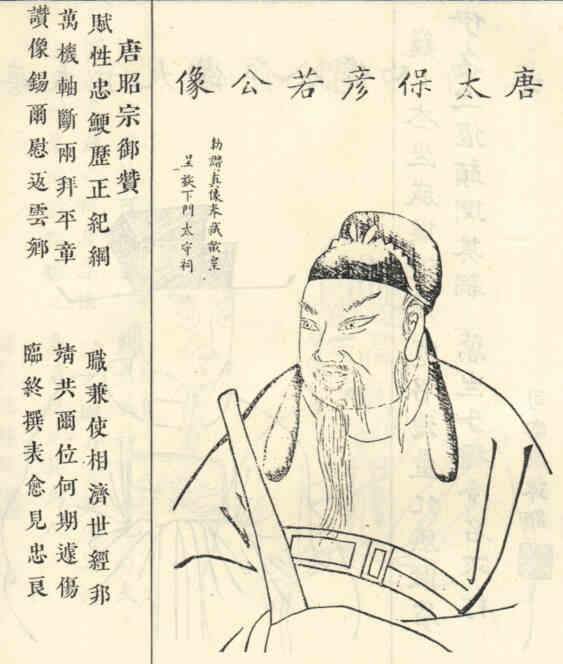 唐太保彥若公像
勅譜真像奉
唐昭宗御贊
賦性忠鯁歷正紀綱
職兼使相濟世經邦
萬機軸斷兩拜平章
靖共爾位何期遽傷
讚像錫爾慰返雲鄉
臨終撰表愈見忠良